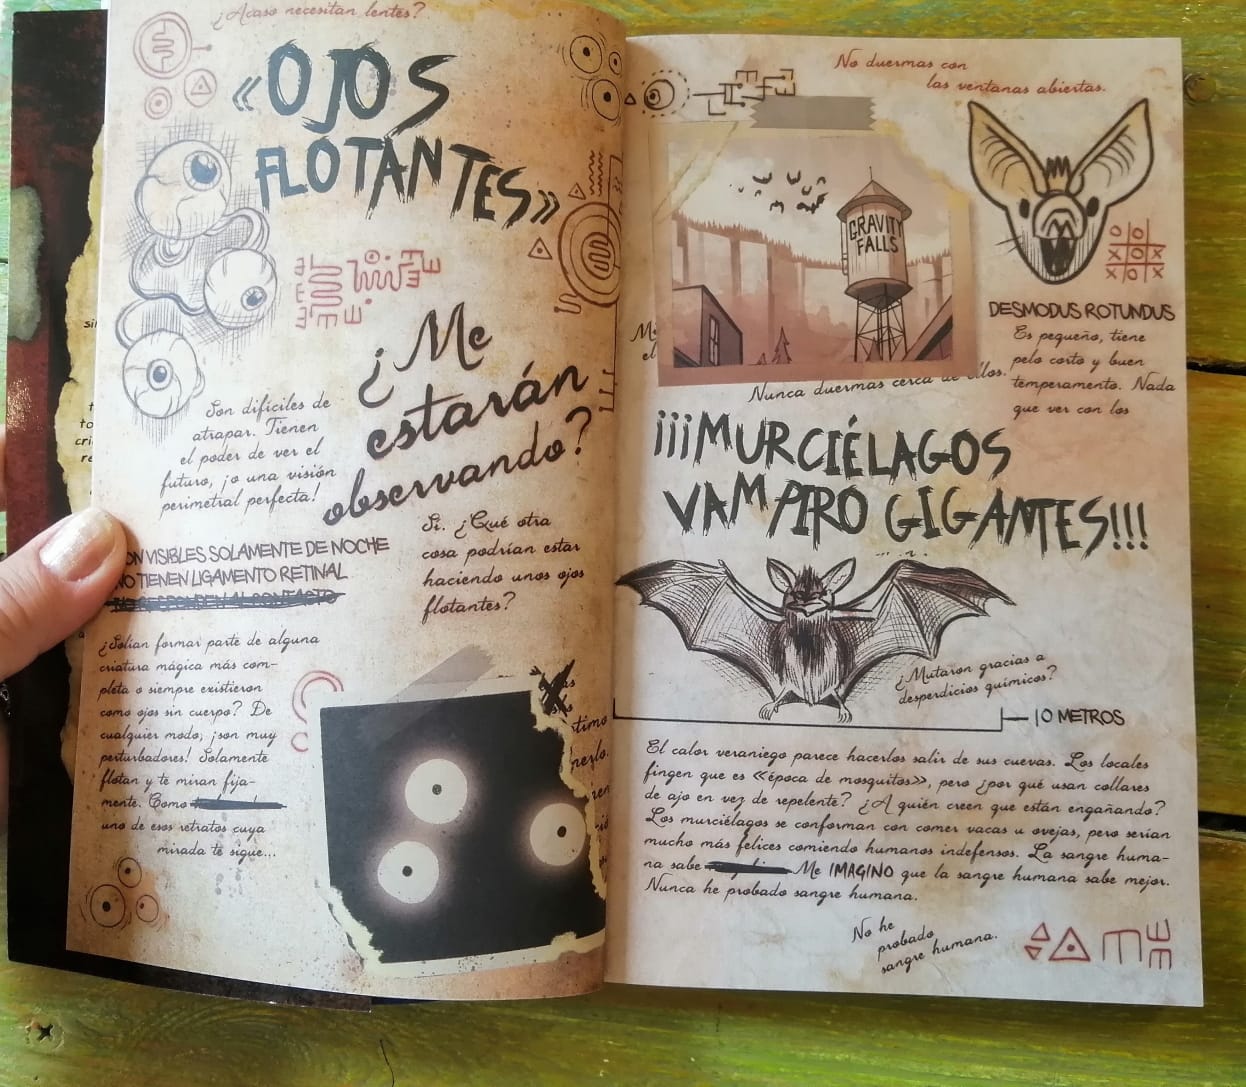 ¿Acaso necesitan lentes?
«OJOS
FLOTANTES»
¿Me
estarán
observando?
Son difíciles de
atrapar. Tienen
el poder de ver el
futuro, ¡o una visión
perimetral perfecta!
Sí. ¿Qué otra
cosa podrían estar
haciendo unos ojos
flotantes?
ON VISIBLES SOLAMENTE DE NOCHE
NO TIENEN LIGAMENTO RETINAL
¿Solían formar parte de alguna
criatura mágica más com-
pleta o siempre existieron
como ojos sin cuerpo? De
cualquier modo, ¡son muy
perturbadores! Solamente
flotan y te miran fija-
mente. Como
uno de esos retratos cuya
mirada te sigue...
No duermas con
las ventanas abiertas.
GRAVITY
FALLS
O
X X
X O X
DESMODUS ROTUNDUS
Es pequeño, tiene
pelo corto y buen
temperamento. Nada
que ver con los
Nunca duermas cerca de ellos.
¡¡¡MURCIÉLAGOS
VAMPIRO GIGANTES!!!
¿Mutaron gracias a
desperdicios químicos?
10 METROS
El calor veraniego parece hacerlos salir de sus cuevas. Los locales
fingen que es «época de mosquitos», pero ¿por qué usan collares
de ajo en vez de repelente? ¿A quién creen que están engañando?
Los murciélagos se conforman con comer vacas u ovejas, pero serían
mucho más felices comiendo humanos indefensos. La sangre huma-
na sabe Me IMAGINO que la sangre humana sabe mejor.
Nunca he probado sangre humana.
No he
probado
sangre humana.